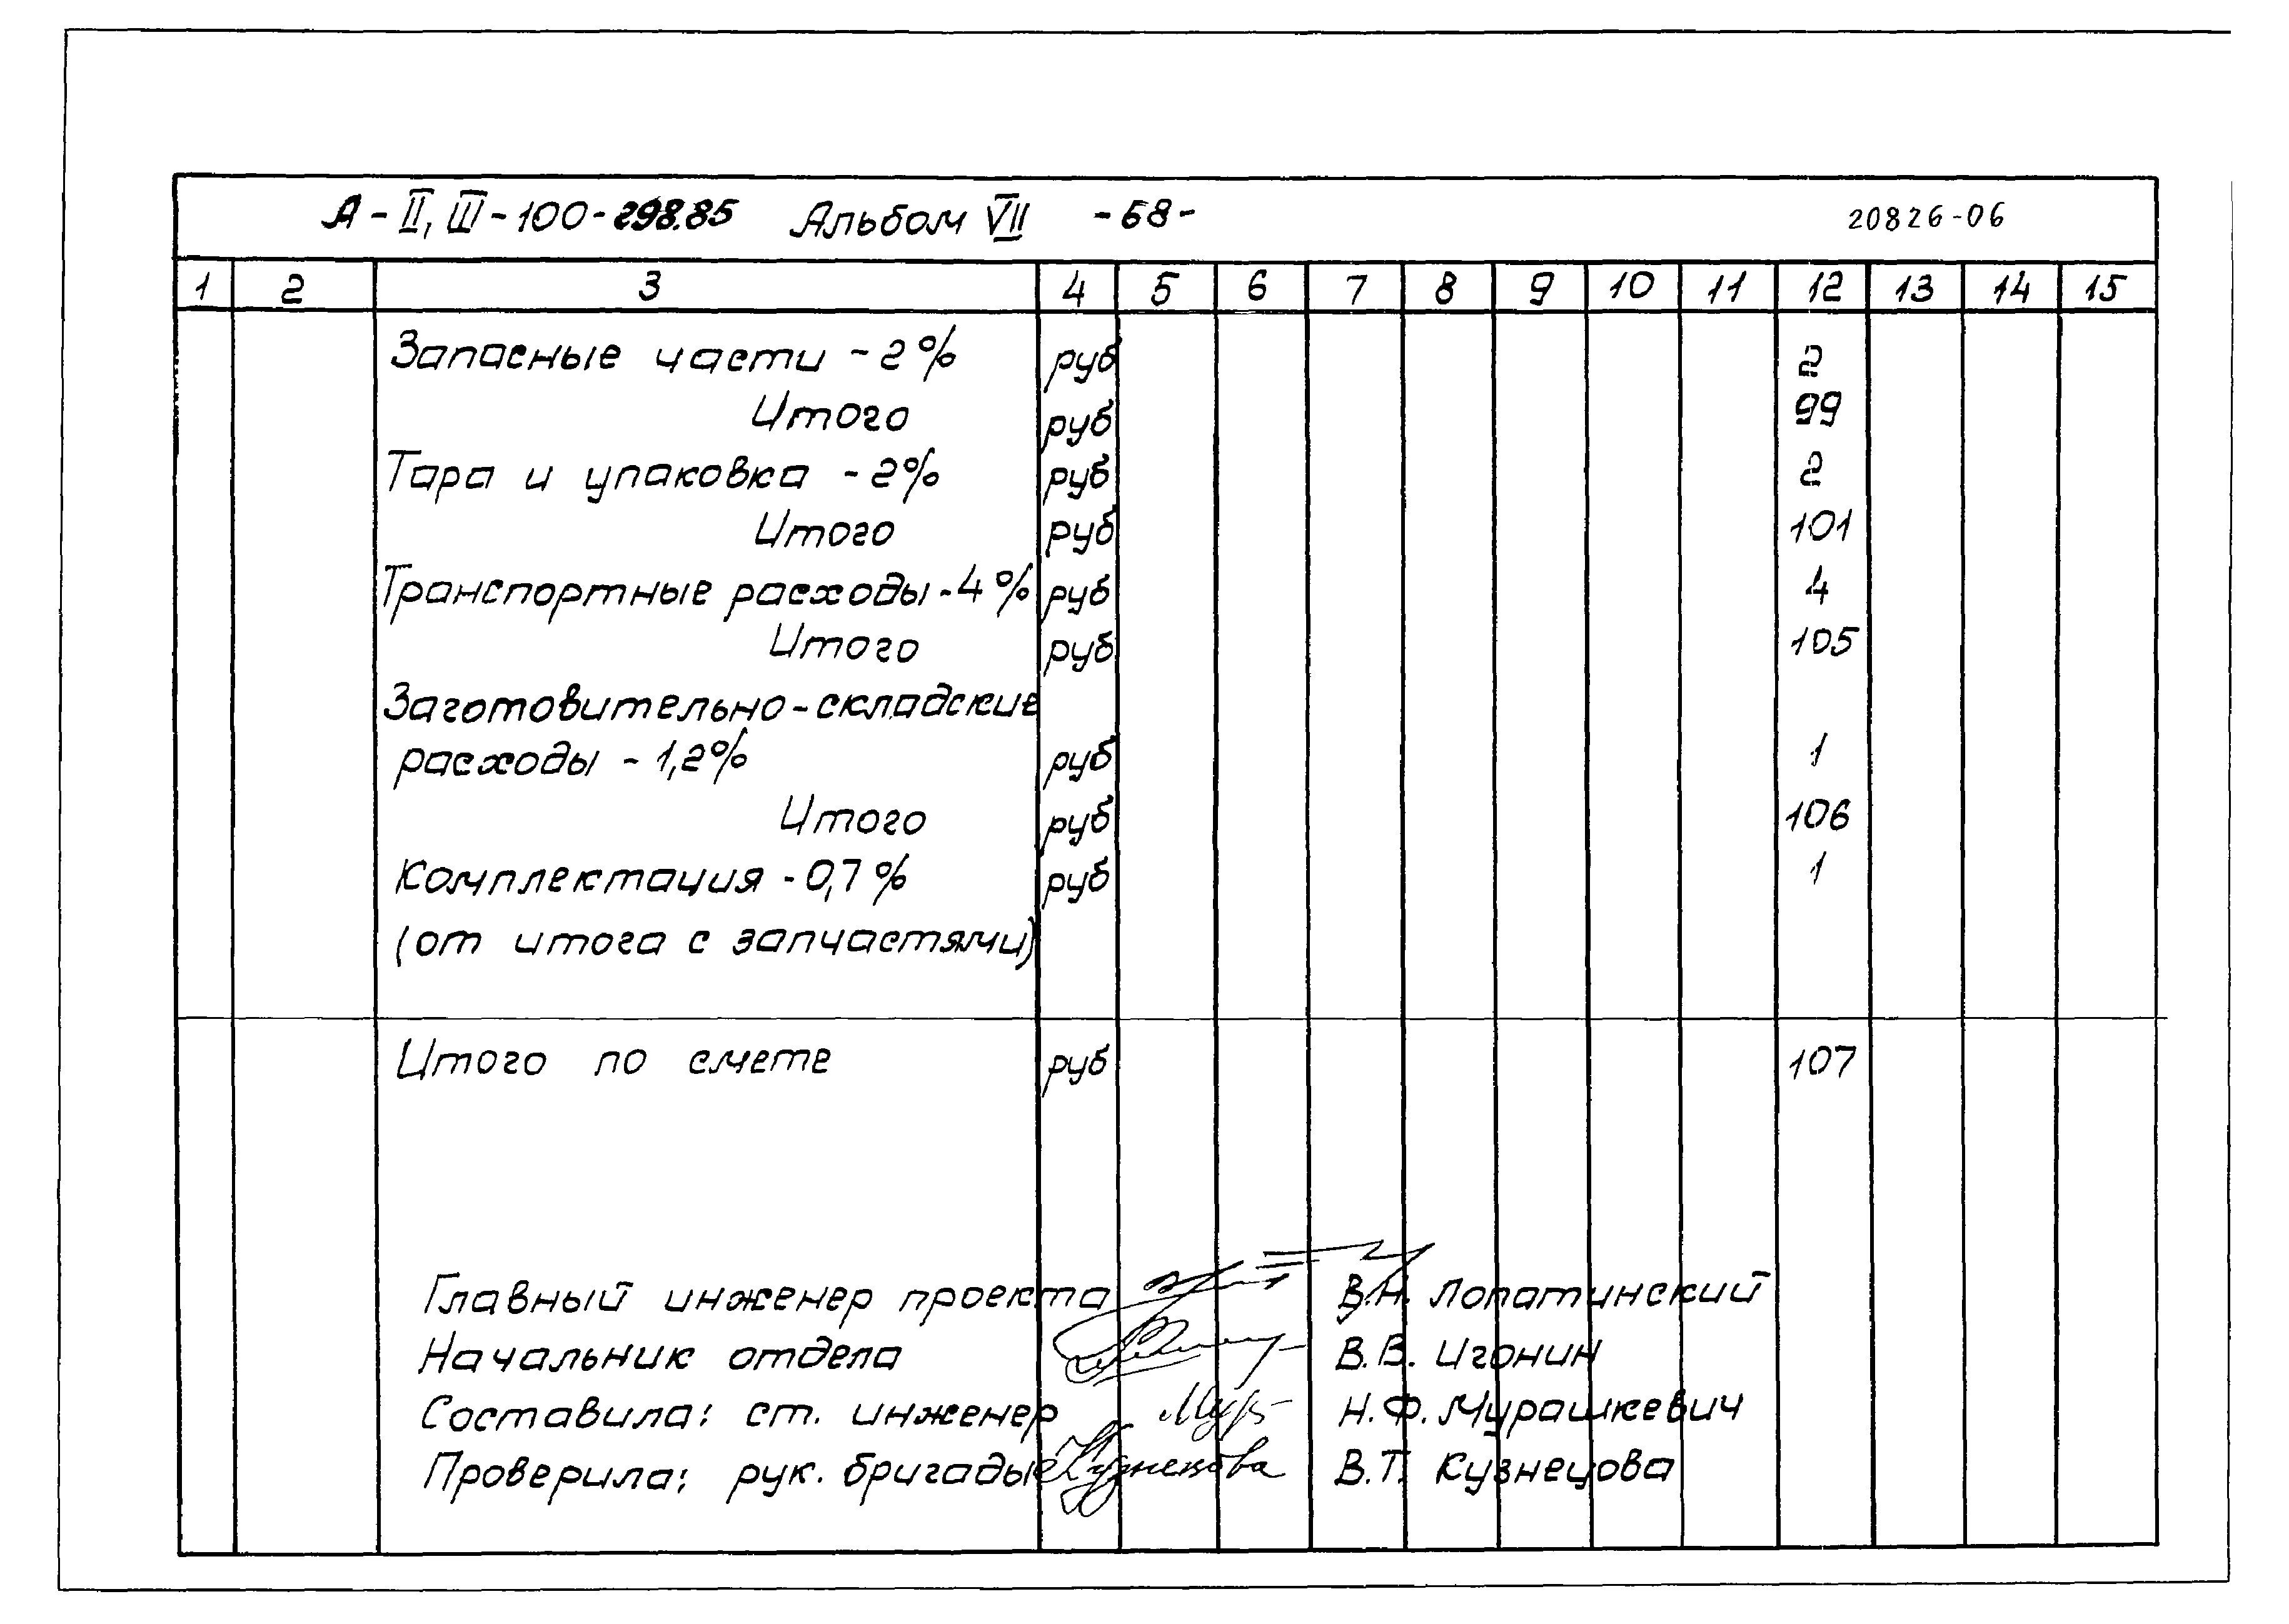 А-II, III-100-298.85 Альбом VII -68- 20826-06
1 2 3 4 5 6 7 8 9 10 11 12 13 14 15
Запасные части - 2% руб 2
Итого руб 99
Тара и упаковка - 2% руб 2
Итого руб 101
Транспортные расходы - 4% руб 4
Итого руб 105
Заготовительно-складские
расходы - 1,2% руб 1
Итого руб 106
Комплектация - 0,7% руб 1
(от итога с запчастями)
Итого по смете руб 107
Главный инженер проекта В.Н. Лопатинский
Начальник отдела В.В. Игонин
Составила: ст. инженер Мур Н.Ф. Мурашкевич
Проверила: рук. бригады Кузнецова В.Т. Кузнецова